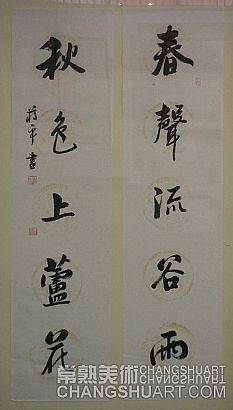 春聲流谷雨
秋色上蘆花
蔣平書
常熟美術 CHANGSHUART
CHANGSHUART.COM